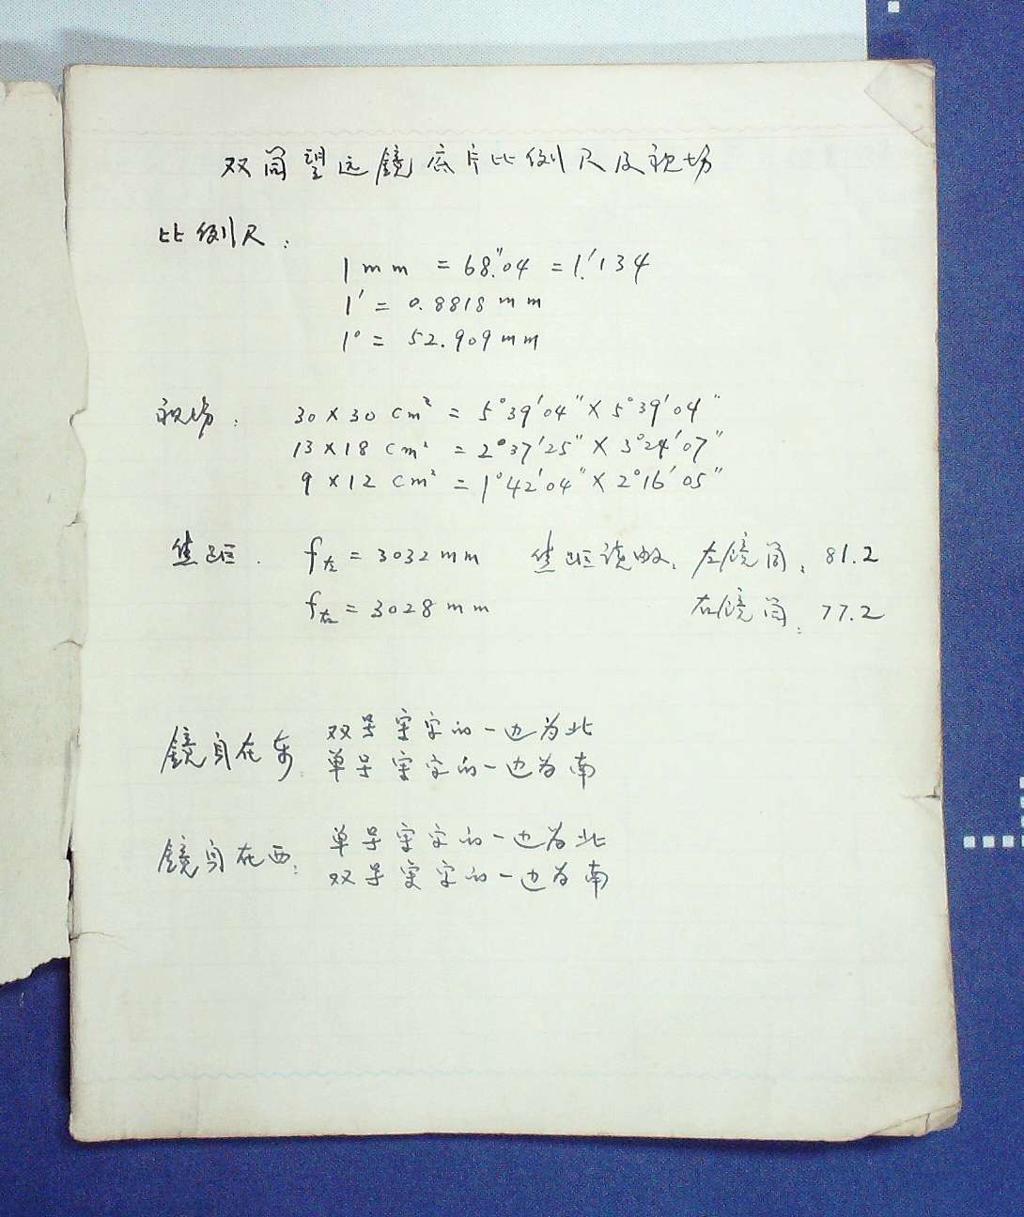 双筒望远镜底片比例尺及视场
比例尺:
1mm = 68."04 = 1.'134
1' = 0.8818mm
1° = 52.909mm
视场: 30×30 cm² = 5°39'04"×5°39'04"
13×18 cm² = 2°37'25"×3°24'07"
9×12 cm² = 1°42'04"×2°16'05"
焦距. f左 = 3032mm 焦距读数: 左镜筒: 81.2
f右 = 3028mm 右镜筒: 77.2
镜身在东: 双号字的一边为北
单号字的一边为南
镜身在西: 单号字的一边为北
双号字的一边为南